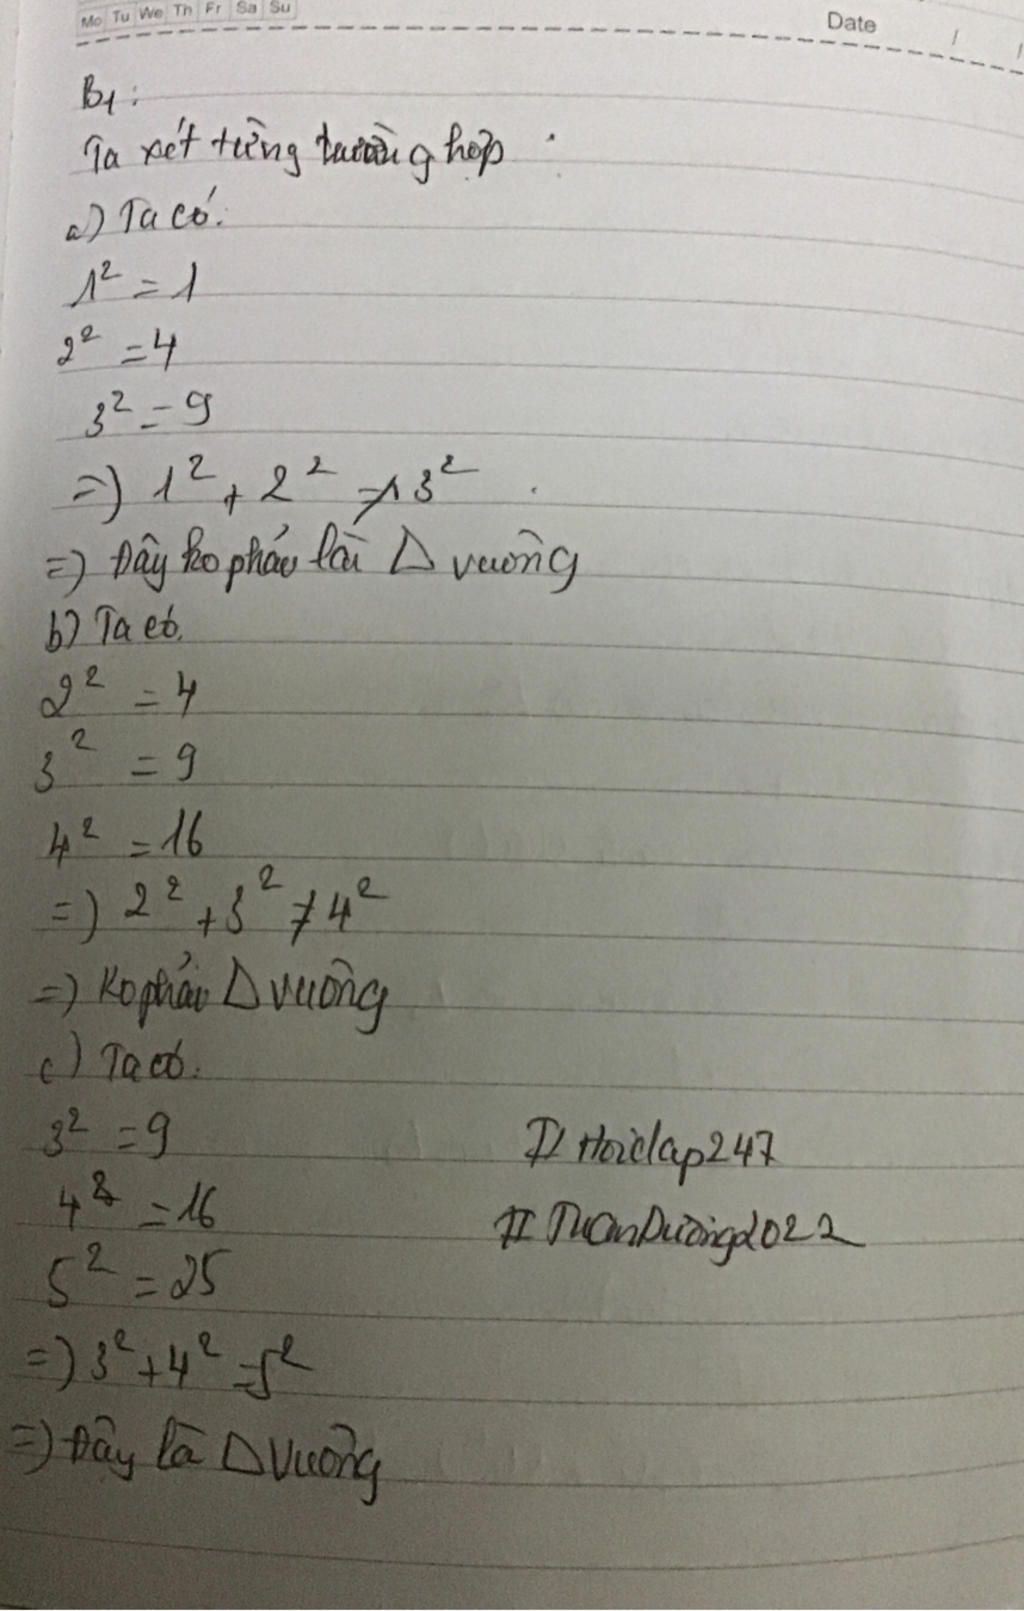 Mo Tu We Th Fr Sa Su
Date / /
B1:
Ta xét từng trường hợp :
a) Ta có:
1² = 1
2² = 4
3² = 9
=) 1² + 2² ≠ 3²
=) Đây ko phải là Δ vuông
b) Ta có.
2² = 4
3² = 9
4² = 16
=) 2² + 3² ≠ 4²
=) Ko phải Δ vuông
c) Ta có.
3² = 9
4² = 16
5² = 25
=) 3² + 4² = 5²
=) Đây là Δ Vuông
# Hoidap247
# TuanDuong2022